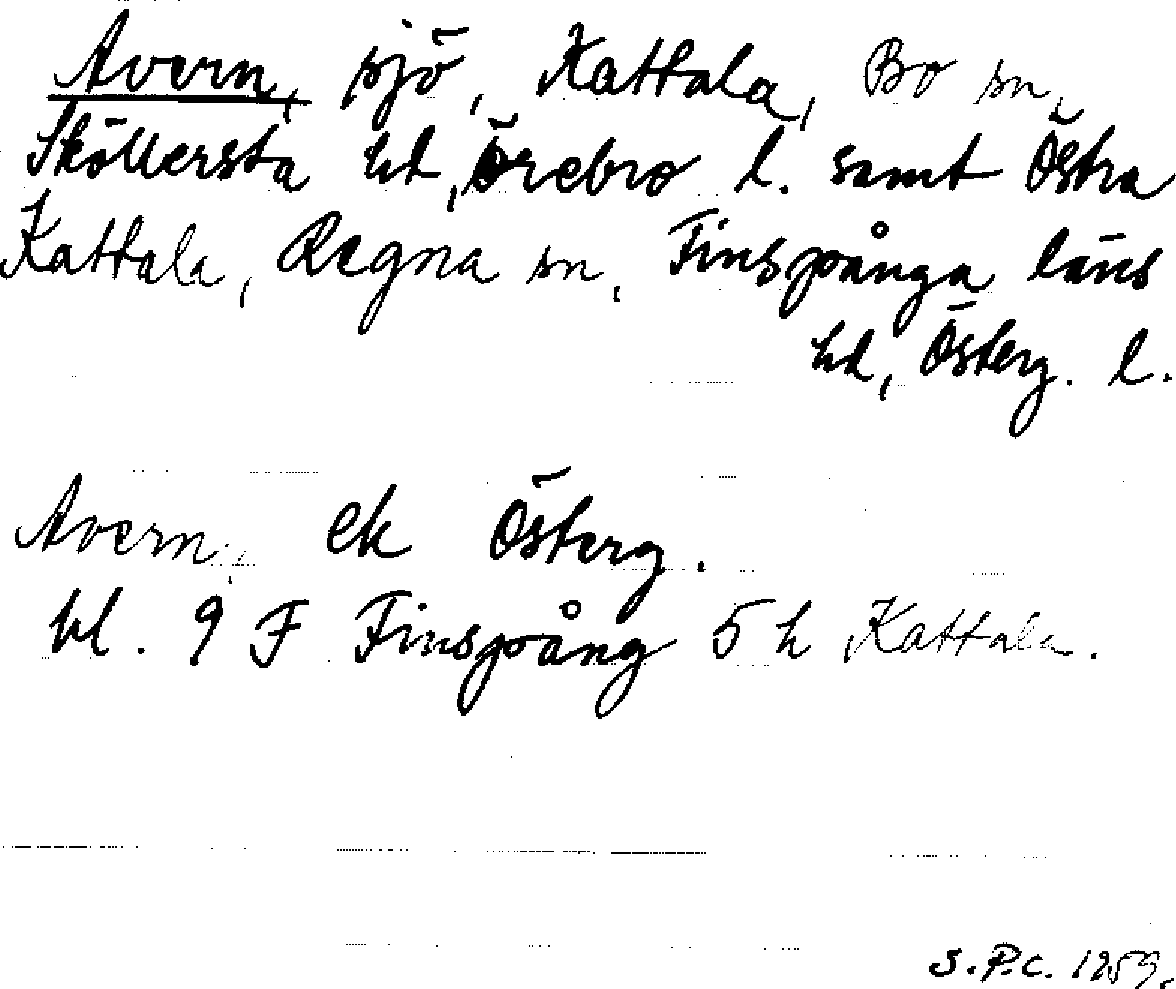 Avern, sjö, Kattala, Bo sn,
Sköllersta hd, Örebro l. samt Östra
Kattala, Regna sn, Finspånga läns
hd, Österg. l.
Avern, ek Österg.
bl. 9 F Finspång 5 h Kattala.
S.P.C. 1959.